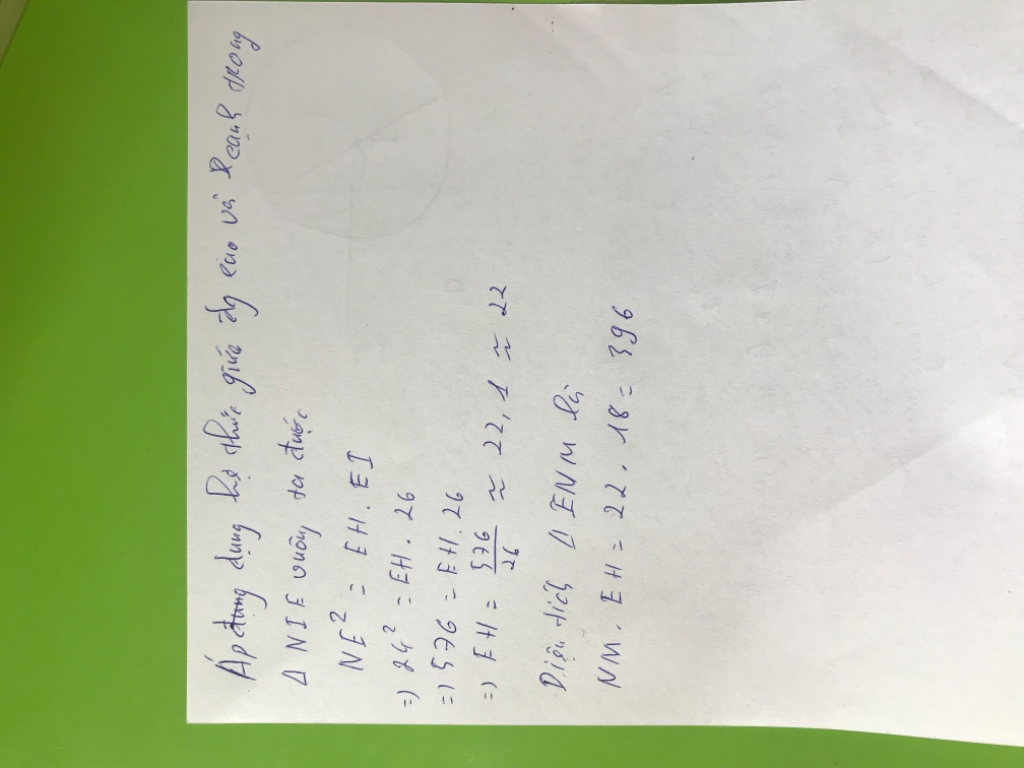 Áp dụng hệ thức giữa đg cao và cạnh trong
Δ NIE vuông ta được
NE² = EH . EI
=) 24² = EH . 26
=) 576 = EH . 26
=) EH = 576/26 ≈ 22,1 ≈ 22
Diện tích Δ ENM là
NM . EH = 22 . 18 = 396